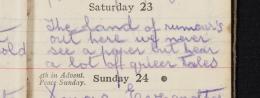 Saturday 23
The land of rumours
out here we never
see a paper but hear
a lot of queer tales
old
4th in Advent.
Peace Sunday.
Sunday 24